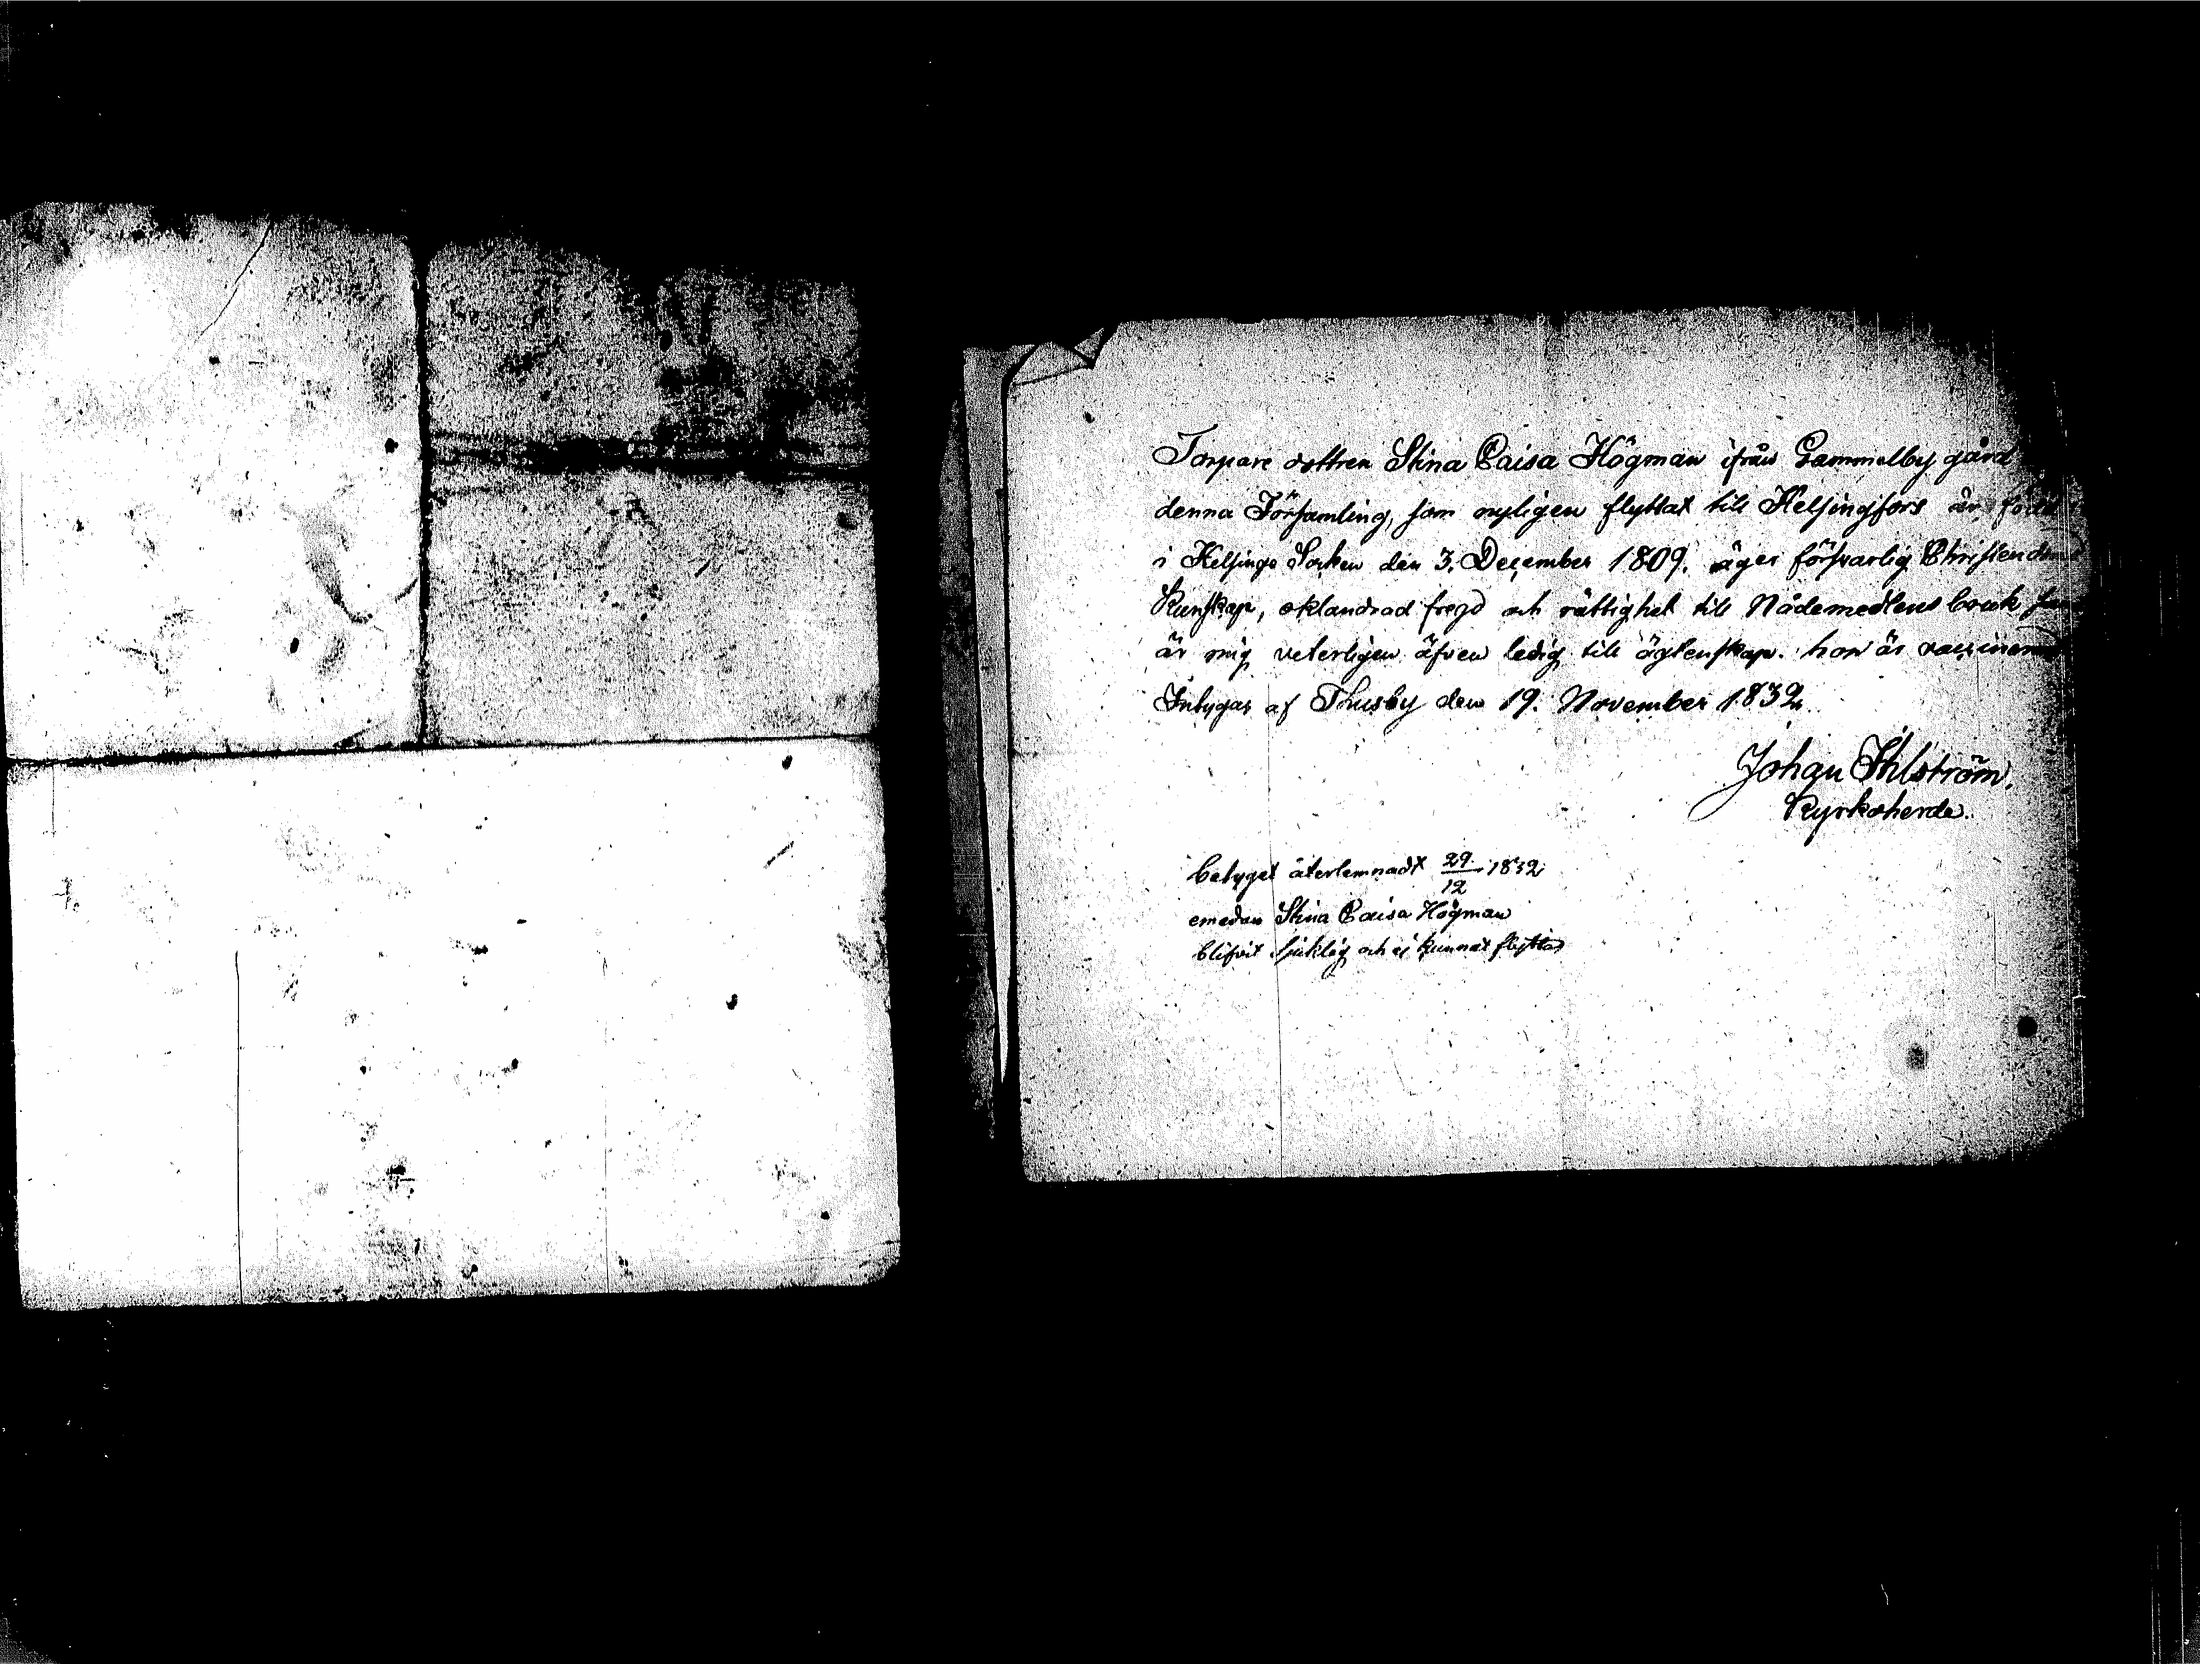 Torpare dottren Stina Caisa Högman ifrån Gammelby gård
denna Församling, som nyligen flyttat till Helsingfors är född
i Helsinge Socken den 3. December 1809. äger försvarlig Christendoms
Kunskap, oklandrad fregd och rättighet till Nådemedlens bruk
är mig veterligen äfven ledig till ägtenskap. hon är vaccinerad
Intygas af Thusby den 19. November 1832.
Johan Ihlström.
Kyrkoherde.
betyget återlemnadt 29/12 1832
emedan Stina Caisa Högman
blifvit sjuklig och ej kunnat flyttas